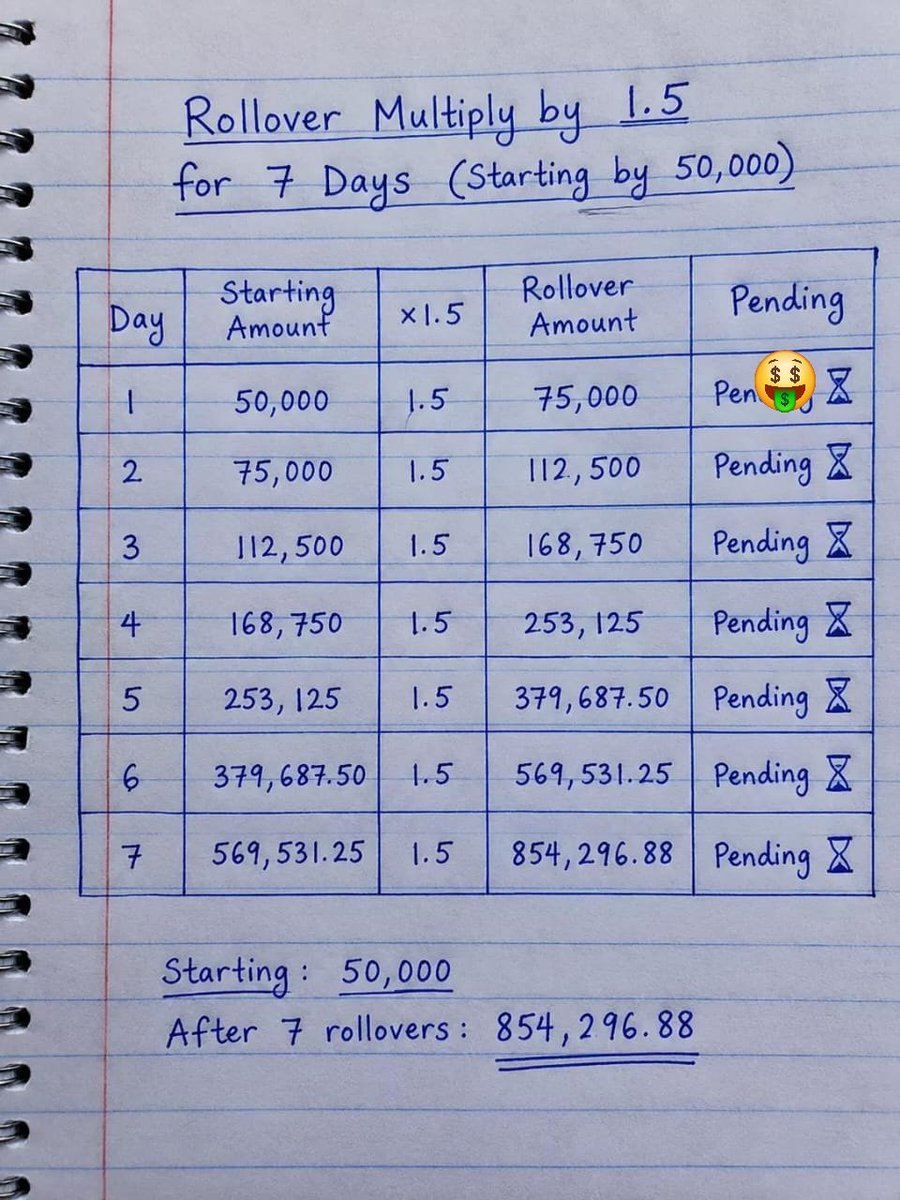 Rollover Multiply by 1.5
for 7 Days (Starting by 50,000)
Day Starting Amount ×1.5 Rollover Amount Pending
1 50,000 1.5 75,000
2 75,000 1.5 112,500 Pending ⏳
3 112,500 1.5 168,750 Pending ⏳
4 168,750 1.5 253,125 Pending ⏳
5 253,125 1.5 379,687.50 Pending ⏳
6 379,687.50 1.5 569,531.25 Pending ⏳
7 569,531.25 1.5 854,296.88 Pending ⏳
Starting: 50,000
After 7 rollovers: 854,296.88